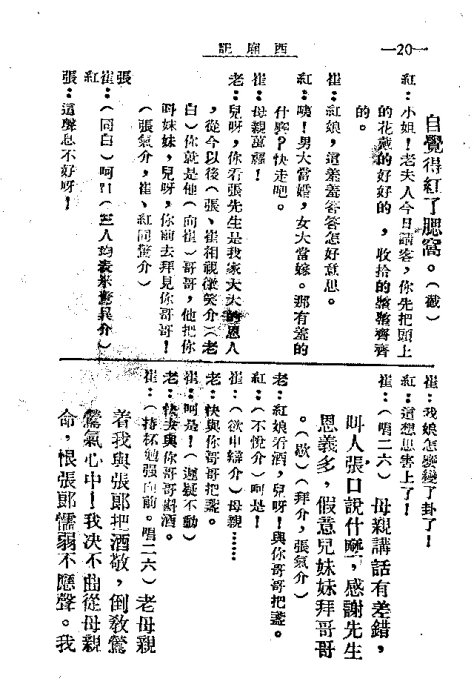 —20—
西廂記
自覺得紅了腮窩。（截）
紅：小姐！老夫人今日請客，你先把頭上
的花戴的好好的，收拾的整整齊齊
的。
崔：紅娘，這羞羞答答怎好意思。
紅：咦！男大當婚，女大當嫁。那有羞的
什麼？快走吧。
崔：母親萬福！
老：兒呀，你看張先生是我家大大的恩人
，從今以後（張、崔相視微笑介）（老
白）你就是他（向崔）哥哥，他把你
叫妹妹，兒呀，你前去拜見你哥哥！
（張氣介，崔、紅同驚介）
張
崔：（同白）呵！！（三人均表示驚異介）
紅
張：這聲息不好呀！
崔：我娘怎麼變了卦了！
紅：這想思害上了！
崔：（唱二六）母親講話有差錯，
叫人張口說什麼，感謝先生
恩義多，假意兒妹妹拜哥哥
。（歇）（拜介，張氣介）
老：紅娘看酒，兒呀！與你哥哥把盞。
紅：（不悅介）呵是！
崔：（欲申辯介）母親……
老：快與你哥哥把盞。
崔：呵是！（遲疑不動）
老：快去與你哥哥斟酒。
崔：（持杯勉强向前。唱二六）老母親
着我與張郎把酒敬，倒教鶯
鶯氣心中！我决不曲從母親
命，恨張郎懦弱不應聲。我